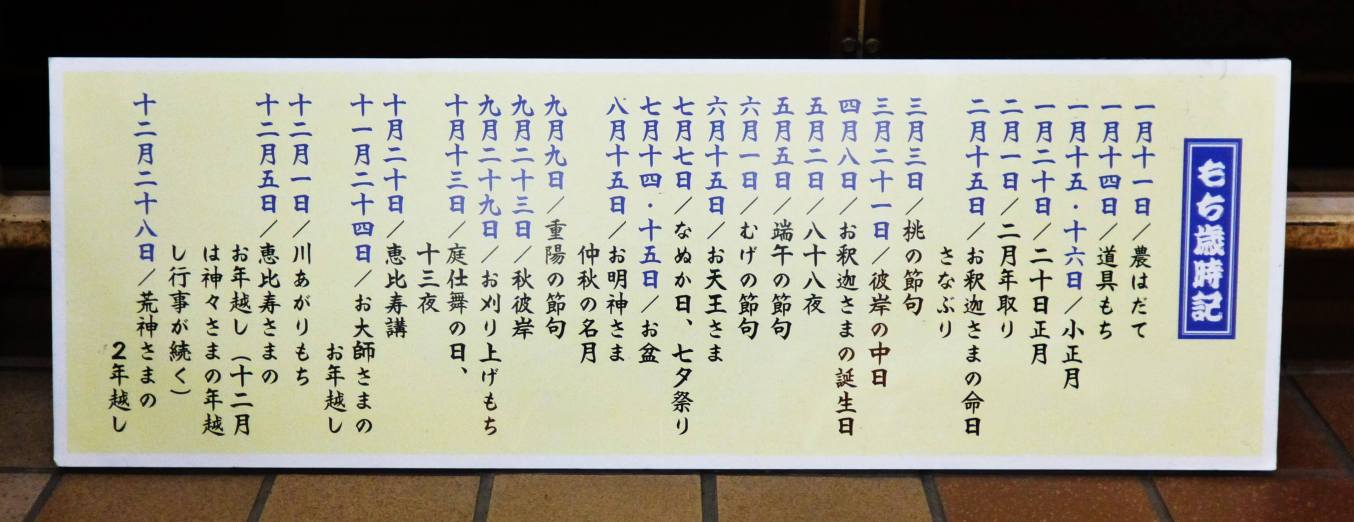 もち歳時記
一月十一日/農はだて
一月十四日/道具もち
一月十五・十六日/小正月
一月二十日/二十日正月
二月一日/二月年取り
二月十五日/お釈迦さまの命日
さなぶり
三月三日/桃の節句
三月二十一日/彼岸の中日
四月八日/お釈迦さまの誕生日
五月二日/八十八夜
五月五日/端午の節句
六月一日/むげの節句
六月十五日/お天王さま
七月七日/なぬか日、七夕祭り
七月十四・十五日/お盆
八月十五日/お明神さま
仲秋の名月
九月九日/重陽の節句
九月二十三日/秋彼岸
九月二十九日/お刈り上げもち
十月十三日/庭仕舞の日、
十三夜
十月二十日/恵比寿講
十一月二十四日/お大師さまの
お年越し
十二月一日/川あがりもち
十二月五日/恵比寿さまの
お年越し(十二月
は神々さまの年越
し行事が続く)
十二月二十八日/荒神さまの
2年越し